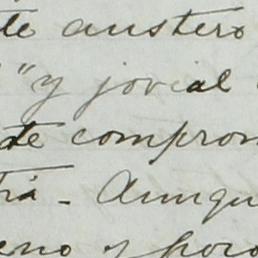 te austero
" y jovial
te comprom
tria - Aunqu
eno y poro